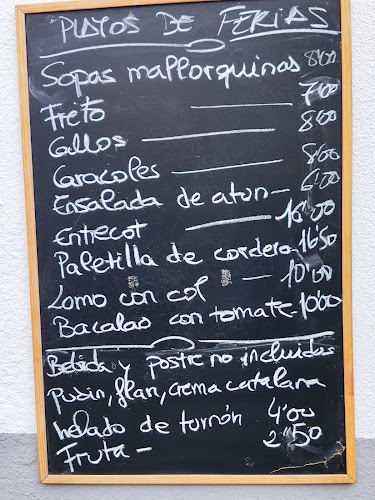 PLATOS DE FERIAS
Sopas mallorquinas 8'00
Freto — 7'00
Callos — 8'00
Caracoles — 8'00
Ensalada de atun — 6'00
Entrecot — 10'00
Paletilla de cordero — 16'50
Lomo con col — 10'00
Bacalao con tomate — 10'00
Bebida y postre no incluidas
Pudin, flan, crema catalana
helado de turrón 4'00
Fruta — 2'50